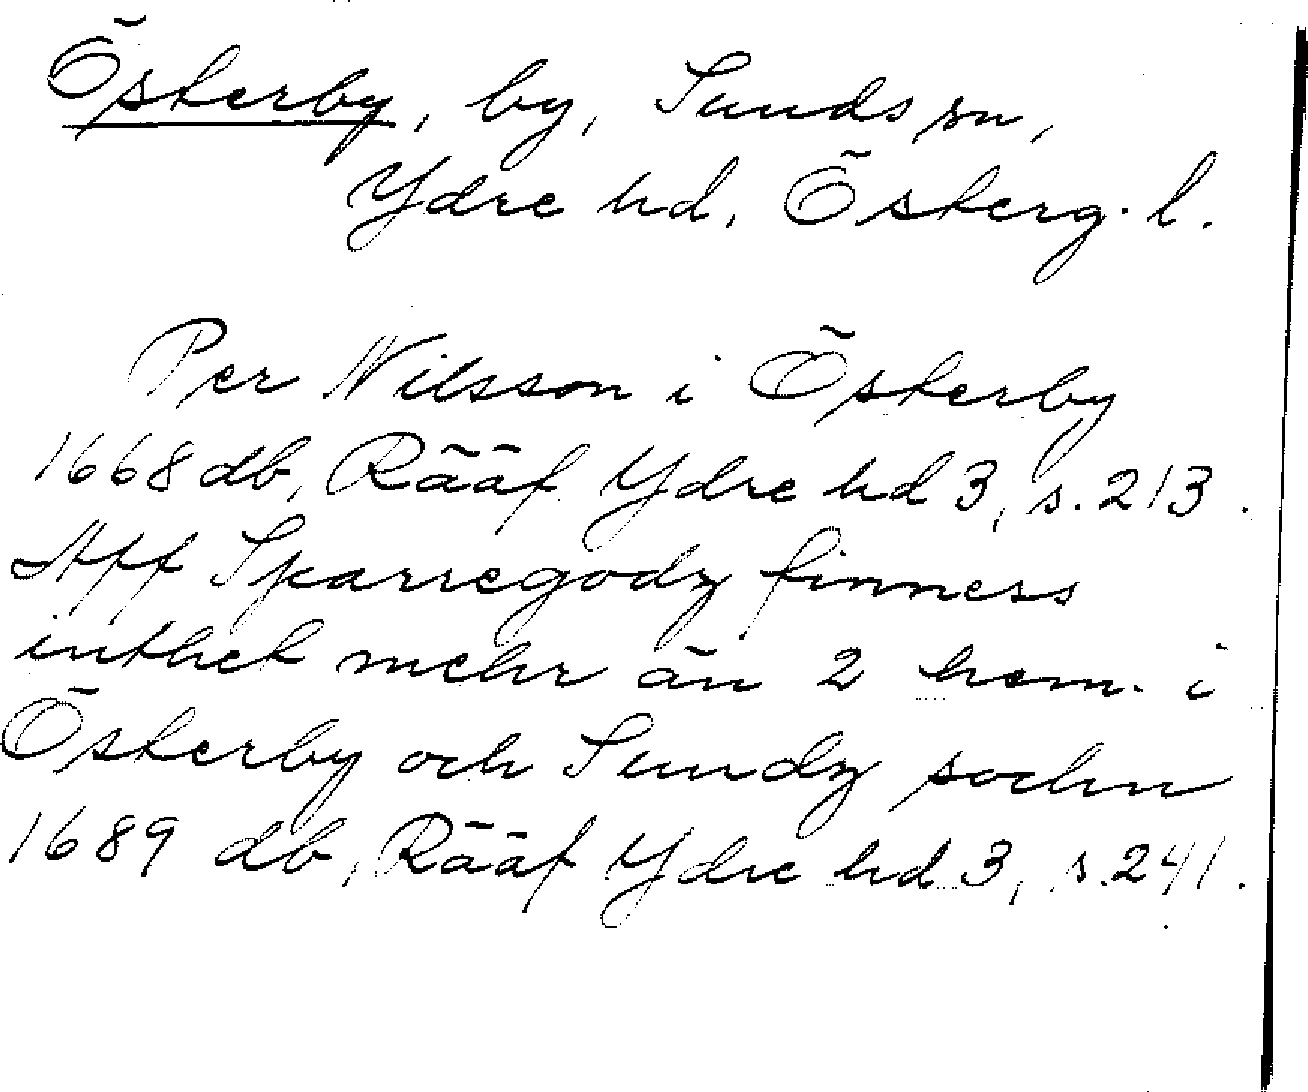 Österby, by, Sunds sn,
Ydre hd, Österg. l.
Per Nilsson i Österby
1668 db, Rääf Ydre hd 3, s. 213.
Aff Sparregodz finness
inthet mehr än 2 hem. i
Österby och Sundz sochn
1689 db, Rääf Ydre hd 3, s. 241.